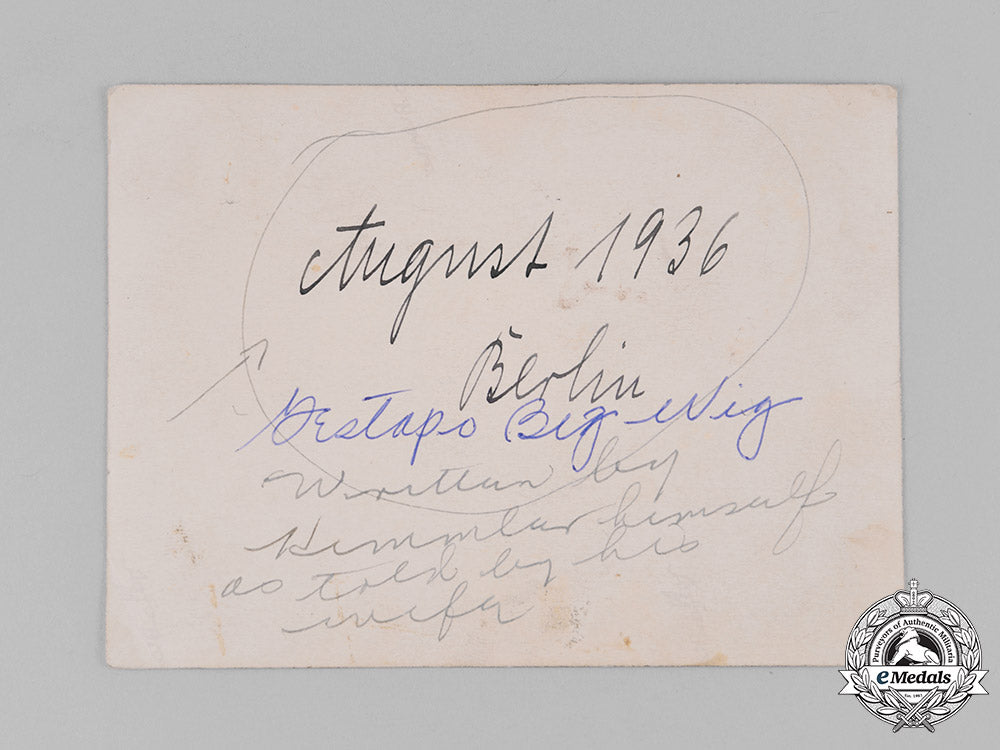 August 1936
Berlin
Gestapo Big Wig
Written by
Himmler himself
as told by his
wife
Purveyors of Authentic Militaria
eMedals